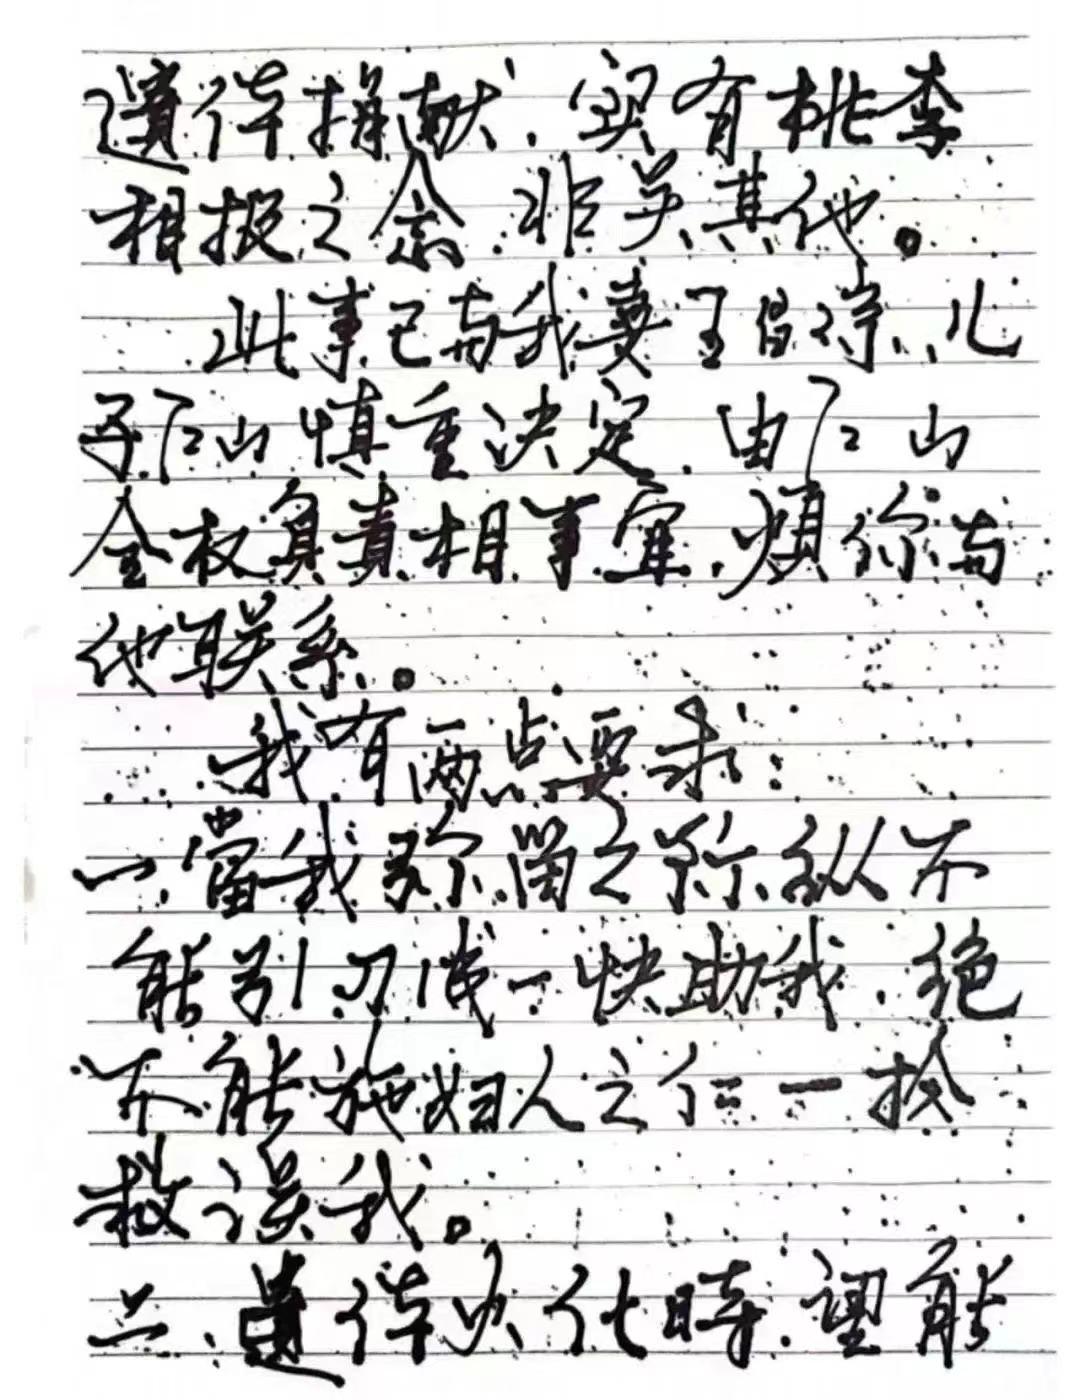 遺体捐献，实有桃李
相投之念，非关其他。
此事已与我妻王晶淙、儿
子仁山慎重决定，由仁山
全权负责相事宜，烦你与
他联系。
我有两点要求：
一、當我弥留之际，你纵不
能引刀成一快助我，绝
不能施妇人之仁一抢
救误我。
二、遺体火化時，望能